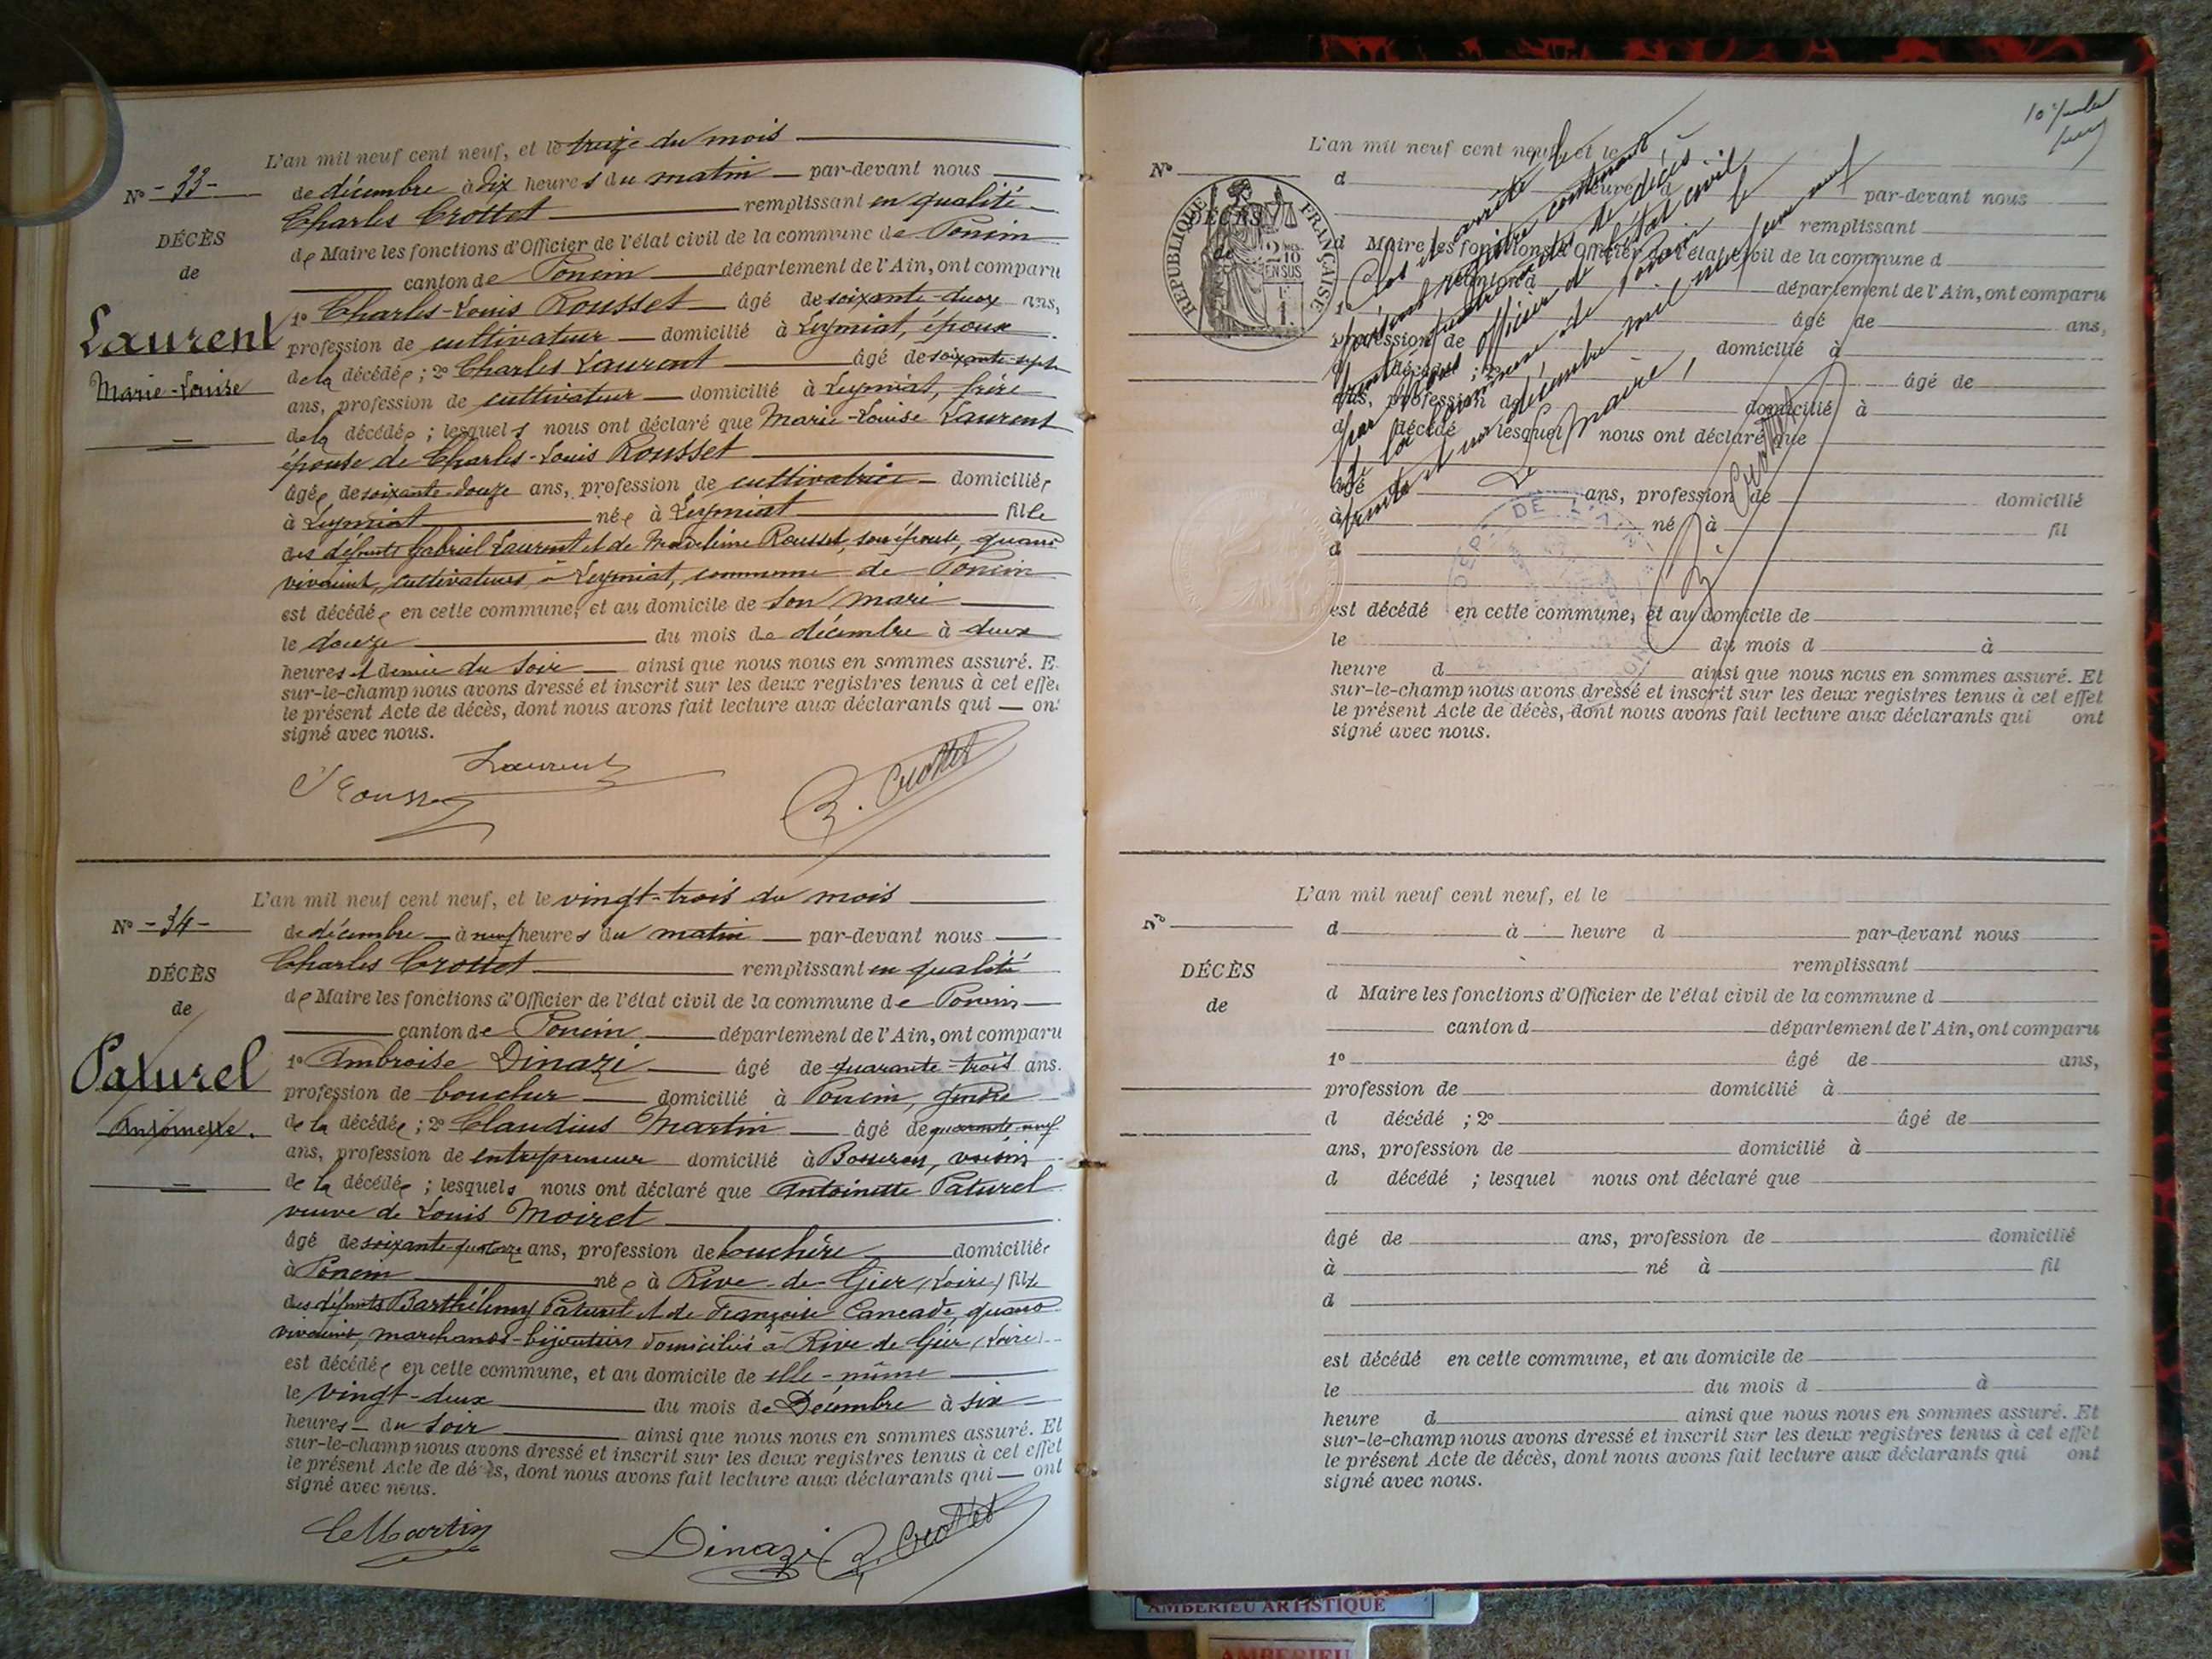 L'an mil neuf cent neuf, et le treize du mois
N° - 33 -
de décembre à dix heures du matin par-devant nous
Charles Crottet remplissant en qualité
DÉCÈS
de Maire les fonctions d'Officier de l'état civil de la commune de Poncin
de
canton de Poncin département de l'Ain, ont comparu
Laurent
1° Charles-Louis Rousset âgé de soixante-deux ans,
profession de cultivateur domicilié à Leymiat, époux
Marie-Louise
de la décédée ; 2° Charles Laurent âgé de soixante-sept
ans, profession de cultivateur domicilié à Leymiat, frère
de la décédée ; lesquels nous ont déclaré que Marie-Louise Laurent
épouse de Charles-Louis Rousset
âgée de soixante-douze ans, profession de cultivatrice domiciliée
à Leymiat née à Leymiat fille
des défunts Gabriel Laurent et de Madeleine Rousset, son épouse, quand
vivaient, cultivateurs à Leymiat, commune de Poncin
est décédée en cette commune, et au domicile de son mari
le douze du mois de décembre à deux
heures et demie du soir ainsi que nous nous en sommes assuré. E
sur-le-champ nous avons dressé et inscrit sur les deux registres tenus à cet effe
le présent Acte de décès, dont nous avons fait lecture aux déclarants qui ont
signé avec nous.
Laurent
Rousset
Crottet
L'an mil neuf cent neuf, et le vingt-trois du mois
N° - 34 -
de décembre à neuf heures du matin par-devant nous
Charles Crottet remplissant en qualité
DÉCÈS
de Maire les fonctions d'Officier de l'état civil de la commune de Poncin
de
canton de Poncin département de l'Ain, ont comparu
Paturel
1° Ambroise Dinazi âgé de quarante-trois ans.
profession de boucher domicilié à Poncin, gendre
Antoinette.
de la décédée ; 2° Claudius Martin âgé de quarante-neuf
ans, profession de entrepreneur domicilié à voisin
de la décédée ; lesquels nous ont déclaré que Antoinette Paturel
veuve de Louis Moiret
âgé de soixante-quatorze ans, profession de bouchère domiciliée
à Poncin née à Rive-de-Gier (Loire) fille
des défunts Barthélemy Paturel et de Françoise Cancade, quand
vivaient, marchands-bijoutiers domiciliés à Rive de Gier (Loire)
est décédée en cette commune, et au domicile de elle-même
le vingt-deux du mois de Décembre à six
heures du soir ainsi que nous nous en sommes assuré. Et
sur-le-champ nous avons dressé et inscrit sur les deux registres tenus à cet effet
le présent Acte de décès, dont nous avons fait lecture aux déclarants qui ont
signé avec nous.
Martin
Dinazi
Crottet
L'an mil neuf cent neuf, et le
N°
d heure par-devant nous
remplissant
RÉPUBLIQUE FRANÇAISE
2/10 EN SUS
d Maire les fonctions d'Officier de l'état civil de la commune d
canton d département de l'Ain, ont comparu
1° âgé de ans,
profession de domicilié à
d décédé ; 2° âgé de
ans, profession de domicilié à
d décédé lesquel nous ont déclaré que
âgé ans, profession de domicilié
à né à fil
d
est décédé en cette commune, et au domicile de
le du mois d à
heure d ainsi que nous nous en sommes assuré. Et
sur-le-champ nous avons dressé et inscrit sur les deux registres tenus à cet effet
le présent Acte de décès, dont nous avons fait lecture aux déclarants qui ont
signé avec nous.
Clos et arrêté le
présent registre contenant
trente quatre actes de décès
par nous Officier de l'état civil
de la commune de Poncin le
trente et un décembre mil neuf cent neuf
Le Maire,
Crottet
DEPT DE L'AIN
L'an mil neuf cent neuf, et le
N°
d à heure d par-devant nous
remplissant
DÉCÈS
d Maire les fonctions d'Officier de l'état civil de la commune d
de
canton d département de l'Ain, ont comparu
1° âgé de ans,
profession de domicilié à
d décédé ; 2° âgé de
ans, profession de domicilié à
d décédé ; lesquel nous ont déclaré que
âgé de ans, profession de domicilié
à né à fil
d
est décédé en cette commune, et au domicile de
le du mois d à
heure d ainsi que nous nous en sommes assuré. Et
sur-le-champ nous avons dressé et inscrit sur les deux registres tenus à cet effet
le présent Acte de décès, dont nous avons fait lecture aux déclarants qui ont
signé avec nous.
AMBERIEU ARTISTIQUE
AMBERIEU